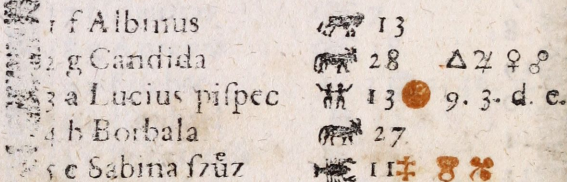 1 f Albinus 13
2 g Candida 28 △ ♃ ♀ ♂
3 a Lucius piſpec 13 9. 3. d. e.
4 b Borbala 27
5 c Sabina ſzůz 11